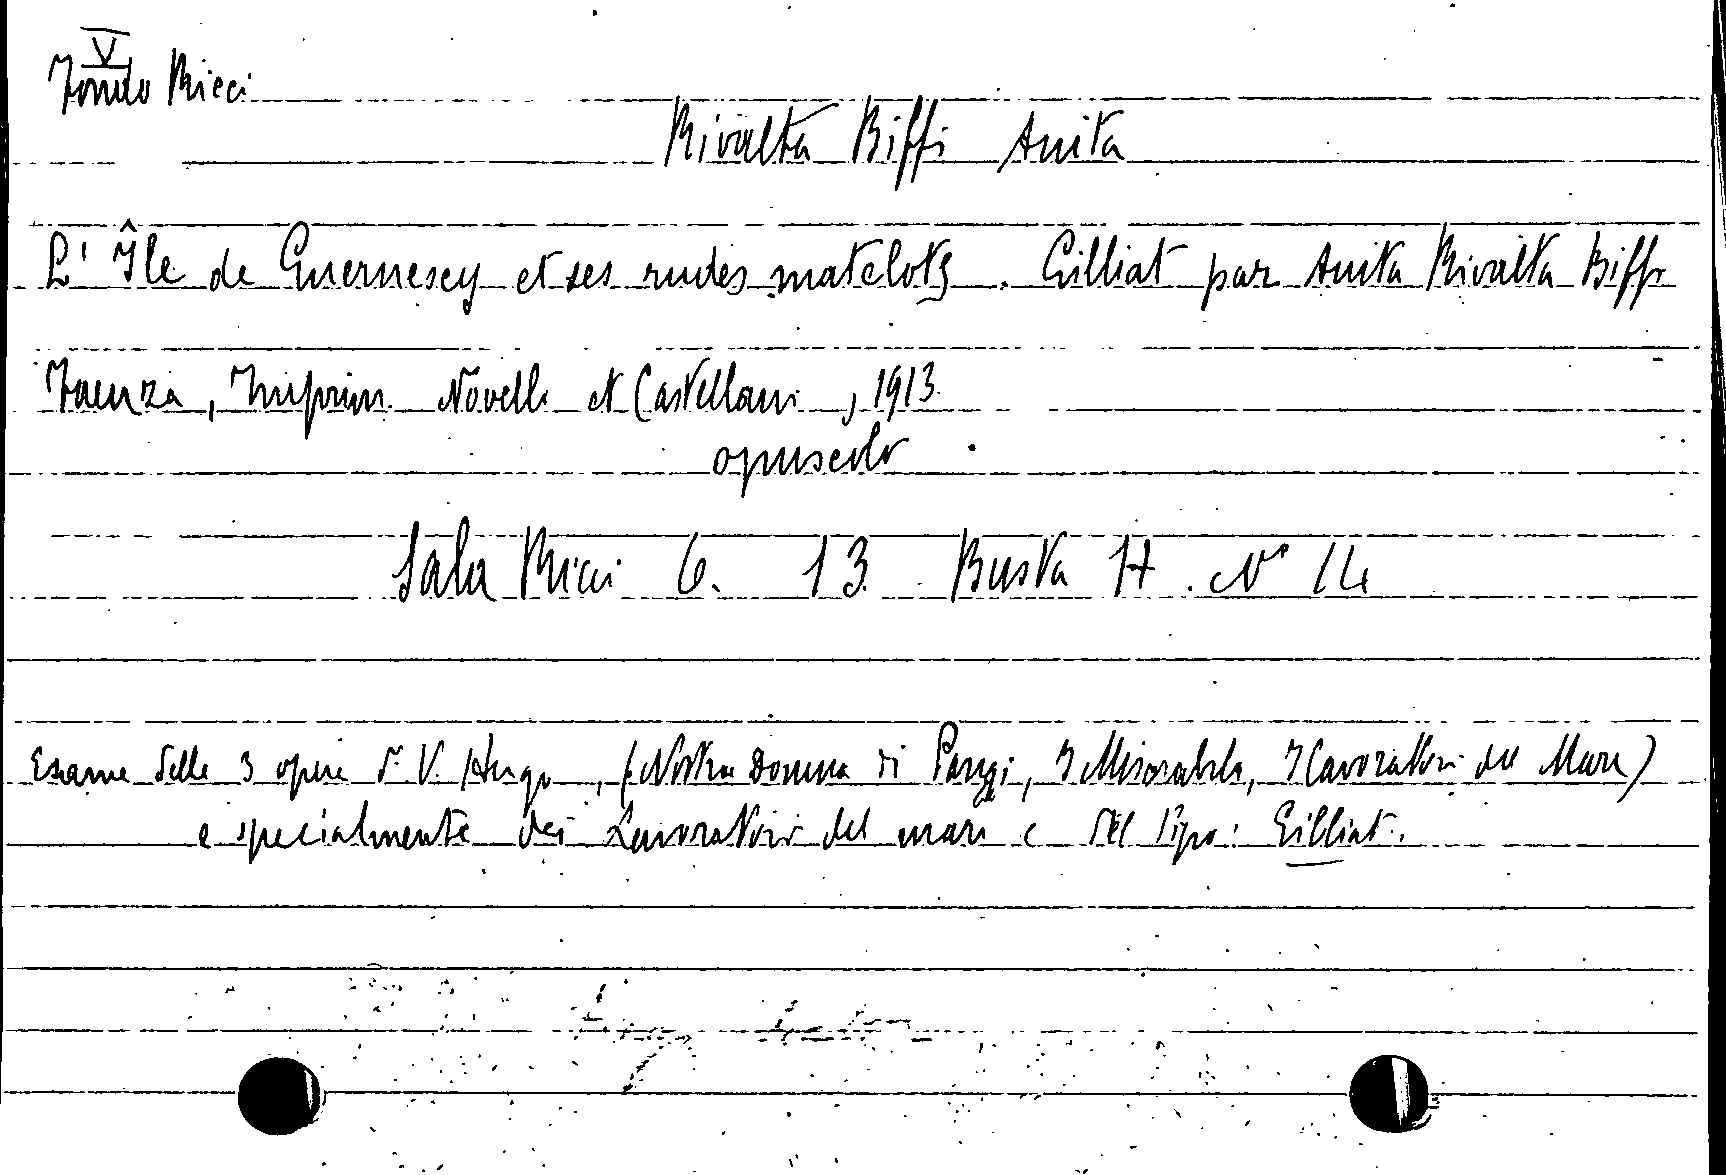 V
Fondo Ricci
Rivalta Biffi Anita
L' Île de Guernesey et ses rudes matelots. Gilliat par Anita Rivalta Biffi
Faenza, Imprim. Novelli et Castellani, 1913.
opuscolo
Sala Ricci 6. 13. Busta H. N° 14
Esame delle 3 opere di V. Hugo, (Nostra Donna di Parigi, I Miserabili, I Lavoratori del Mare)
e specialmente dei Lavoratori del mare e del tipo: Gilliat.